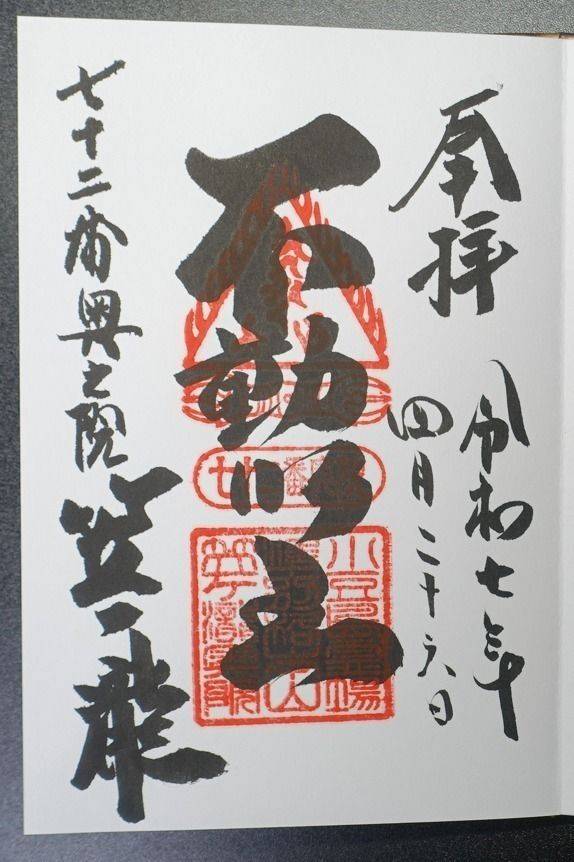 奉拝
令和七年
四月二十六日
不動明王
七十二番奥之院
笠ヶ瀧
小豆島霊場